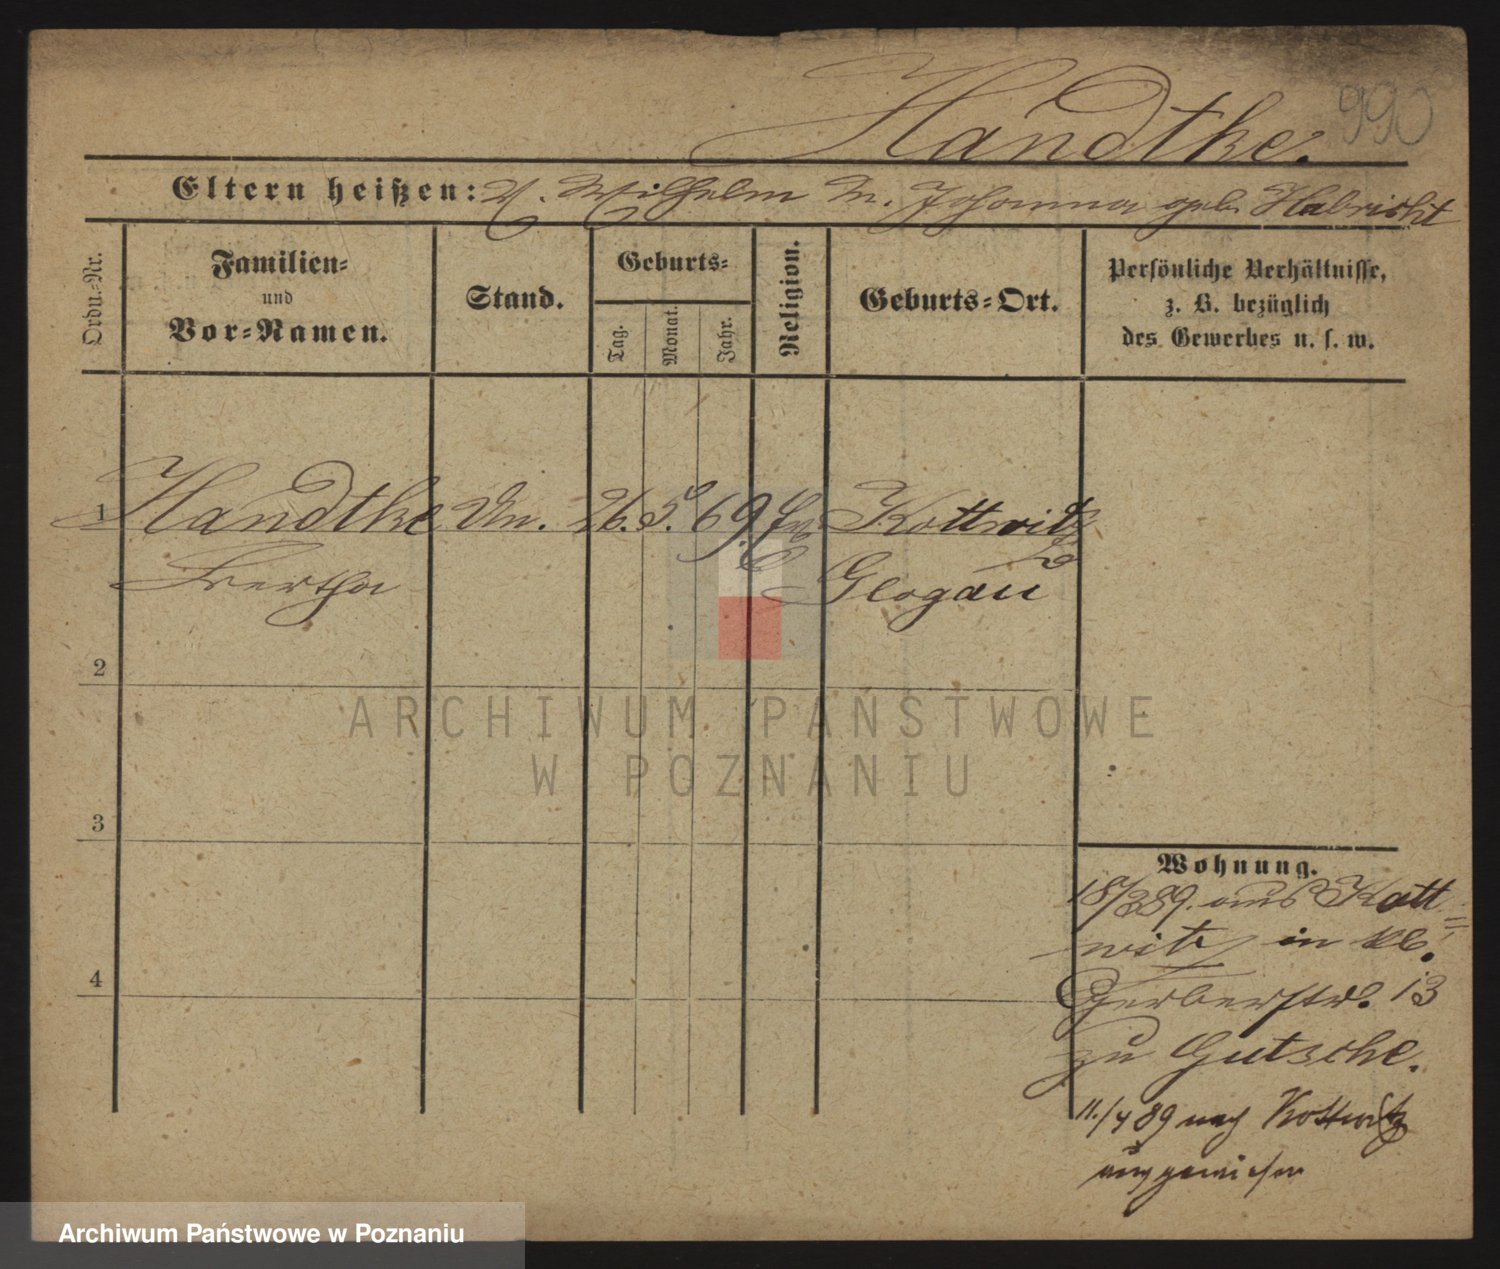 Handtke.
990
Eltern heißen: V. Wilhelm M. Johanna geb. Habricht
Ordn.-Nr.
Familien-
und
Vor-Namen.
Stand.
Geburts-
Tag.
Monat.
Jahr.
Religion.
Geburts-Ort.
Persönliche Verhältnisse,
z. B. bezüglich
des Gewerbes u. s. w.
1 Handtke 26. 5. 69. Kottwitz
Bertha Glogau
2
3
4
Wohnung.
18/3 89. aus Kott=
witz in kl.
Gerberstr. 13
zu Gutsche.
11./4 89 nach Kottwitz
ARCHIWUM PAŃSTWOWE
W POZNANIU
Archiwum Państwowe w Poznaniu